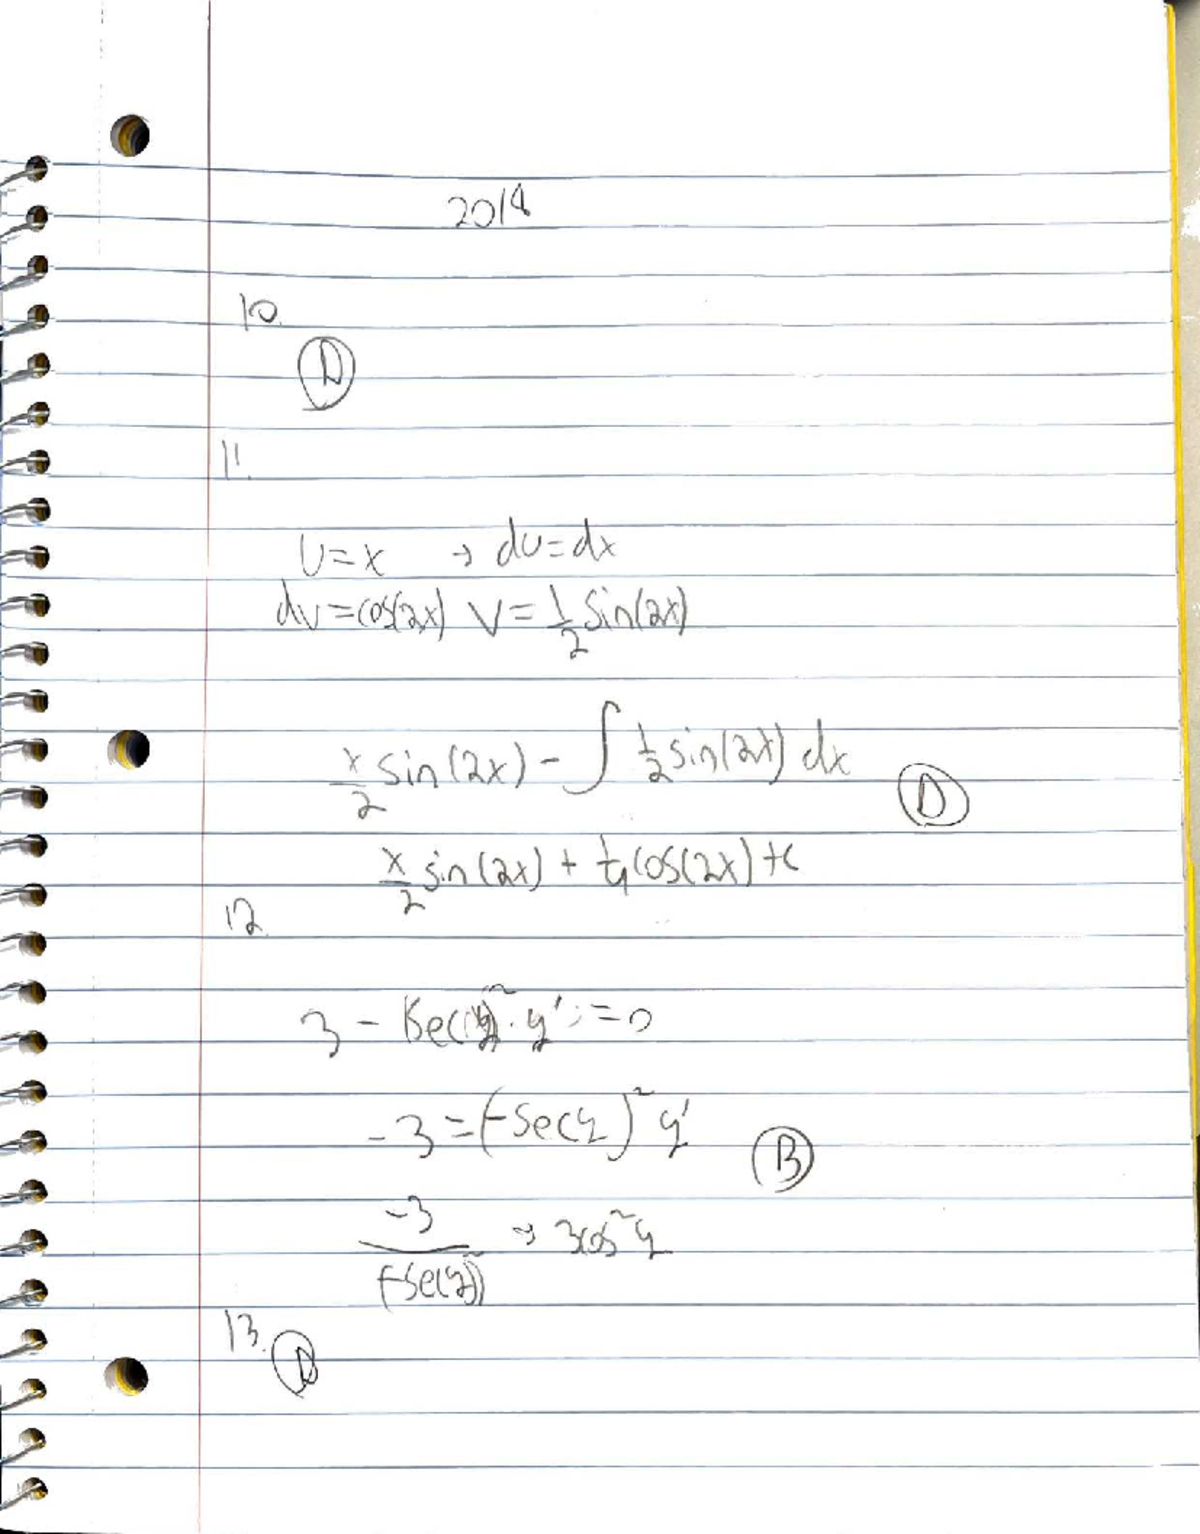 2018
10.
D
11.
U=x → du=dx
dv=cos(2x) V=1/2 sin(2x)
x/2 sin(2x) - ∫ 1/2 sin(2x) dx
D
x/2 sin(2x) + 1/4 cos(2x) + c
12.
3 - (sec(y))² · y' = 0
-3 = (-sec y)² y'
B
-3/(-sec(y))² → 3cos² y
13.
D